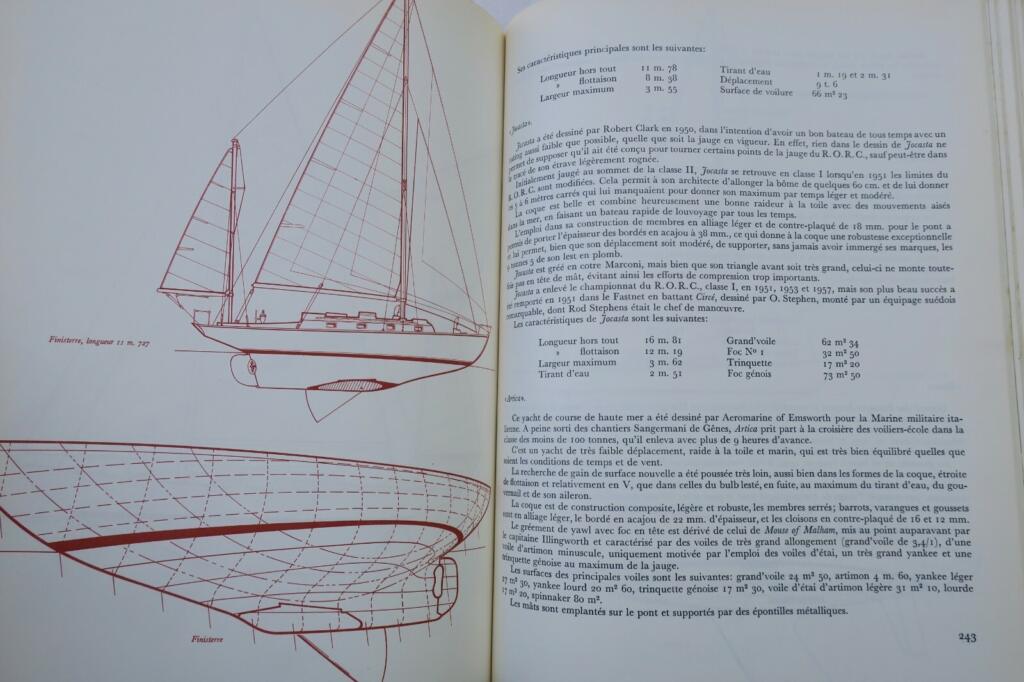 Finisterre, longueur 11 m. 727
Finisterre
Ses caractéristiques principales sont les suivantes:
Longueur hors tout 11 m. 78 Tirant d'eau 1 m. 19 et 2 m. 31
» flottaison 8 m. 38 Déplacement 9 t. 6
Largeur maximum 3 m. 55 Surface de voilure 66 m² 23
«Jocasta».
Jocasta a été dessiné par Robert Clark en 1950, dans l'intention d'avoir un bon bateau de tous temps avec un
rating aussi faible que possible, quelle que soit la jauge en vigueur. En effet, rien dans le dessin de Jocasta ne
permet de supposer qu'il ait été conçu pour tourner certains points de la jauge du R.O.R.C., sauf peut-être dans
le tracé de son étrave légèrement rognée.
Initialement jaugé au sommet de la classe II, Jocasta se retrouve en classe I lorsqu'en 1951 les limites du
R.O.R.C. sont modifiées. Cela permit à son architecte d'allonger la bôme de quelques 60 cm. et de lui donner
5 à 6 mètres carrés qui lui manquaient pour donner son maximum par temps léger et modéré.
La coque est belle et combine heureusement une bonne raideur à la toile avec des mouvements aisés
dans la mer, en faisant un bateau rapide de louvoyage par tous les temps.
L'emploi dans sa construction de membres en alliage léger et de contre-plaqué de 18 mm. pour le pont a
permis de porter l'épaisseur des bordés en acajou à 38 mm., ce qui donne à la coque une robustesse exceptionnelle
et lui permet, bien que son déplacement soit modéré, de supporter, sans jamais avoir immergé ses marques, les
tonnes 5 de son lest en plomb.
Jocasta est gréé en cotre Marconi, mais bien que son triangle avant soit très grand, celui-ci ne monte toute-
fois pas en tête de mât, évitant ainsi les efforts de compression trop importants.
Jocasta a enlevé le championnat du R.O.R.C., classe I, en 1951, 1953 et 1957, mais son plus beau succès a
été remporté en 1951 dans le Fastnet en battant Circé, dessiné par O. Stephen, monté par un équipage suédois
remarquable, dont Rod Stephens était le chef de manœuvre.
Les caractéristiques de Jocasta sont les suivantes:
Longueur hors tout 16 m. 81 Grand'voile 62 m² 34
» flottaison 12 m. 19 Foc Nº 1 32 m² 50
Largeur maximum 3 m. 62 Trinquette 17 m² 20
Tirant d'eau 2 m. 51 Foc génois 73 m² 50
«Artica».
Ce yacht de course de haute mer a été dessiné par Aeromarine of Emsworth pour la Marine militaire ita-
lienne. A peine sorti des chantiers Sangermani de Gênes, Artica prit part à la croisière des voiliers-école dans la
classe des moins de 100 tonnes, qu'il enleva avec plus de 9 heures d'avance.
C'est un yacht de très faible déplacement, raide à la toile et marin, qui est très bien équilibré quelles que
soient les conditions de temps et de vent.
La recherche de gain de surface nouvelle a été poussée très loin, aussi bien dans les formes de la coque, étroite
de flottaison et relativement en V, que dans celles du bulb lesté, en fuite, au maximum du tirant d'eau, du gou-
vernail et de son aileron.
La coque est de construction composite, légère et robuste, les membres serrés; barrots, varangues et goussets
sont en alliage léger, le bordé en acajou de 22 mm. d'épaisseur, et les cloisons en contre-plaqué de 16 et 12 mm.
Le gréement de yawl avec foc en tête est dérivé de celui de Mouse of Malham, mis au point auparavant par
le capitaine Illingworth et caractérisé par des voiles de très grand allongement (grand'voile de 3,4/1), d'une
voile d'artimon minuscule, uniquement motivée par l'emploi des voiles d'étai, un très grand yankee et une
trinquette génoise au maximum de la jauge.
Les surfaces des principales voiles sont les suivantes: grand'voile 24 m² 50, artimon 4 m. 60, yankee léger
17 m² 30, yankee lourd 20 m² 60, trinquette génoise 17 m² 30, voile d'étai d'artimon légère 31 m² 10, lourde
17 m² 20, spinnaker 80 m².
Les mâts sont emplantés sur le pont et supportés par des épontilles métalliques.
243